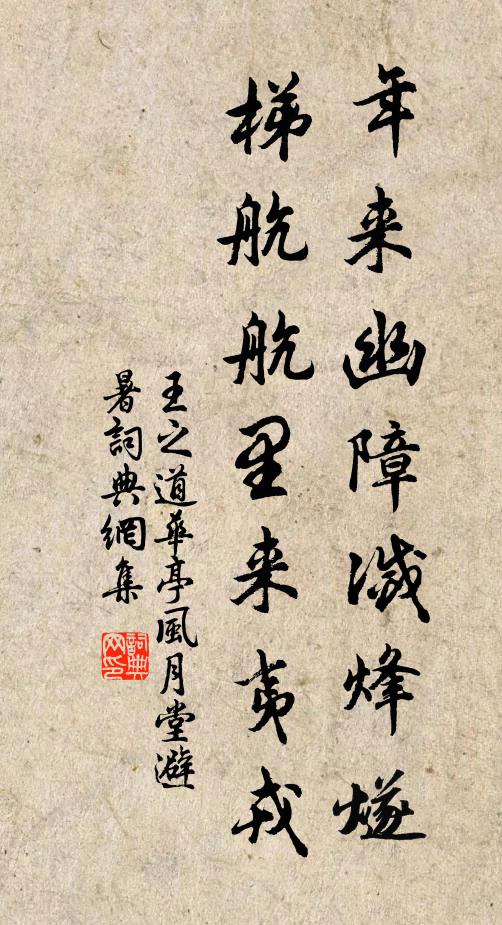 年来幽障滅烽燧
梯航航里来夷戎
王之道華亭風月堂避
暑詞典網集
詞典
网印